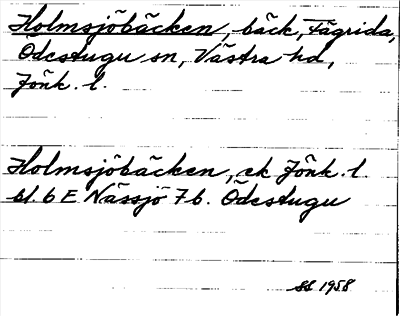 Holmsjöbäcken, bäck, Fägrida,
Ödestugu sn, Västra hd,
Jönk. l.
Holmsjöbäcken, ek Jönk. l.
bl. 6 E Nässjö 7 b. Ödestugu
SS 1958